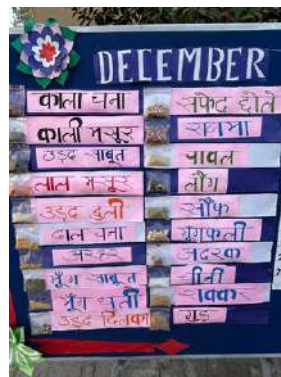 DECEMBER
काला चना
काली मसूर
उड़द साबूत
लाल मसूर
उड़द धुली
दाल चना
अरहर
मूँग साबूत
मूँग धुली
उड़द छिलका
सफेद छोले
राजमा
चावल
लौंग
सौंफ
मूंगफली
अदरक
चीनी
शक्कर
गुड़